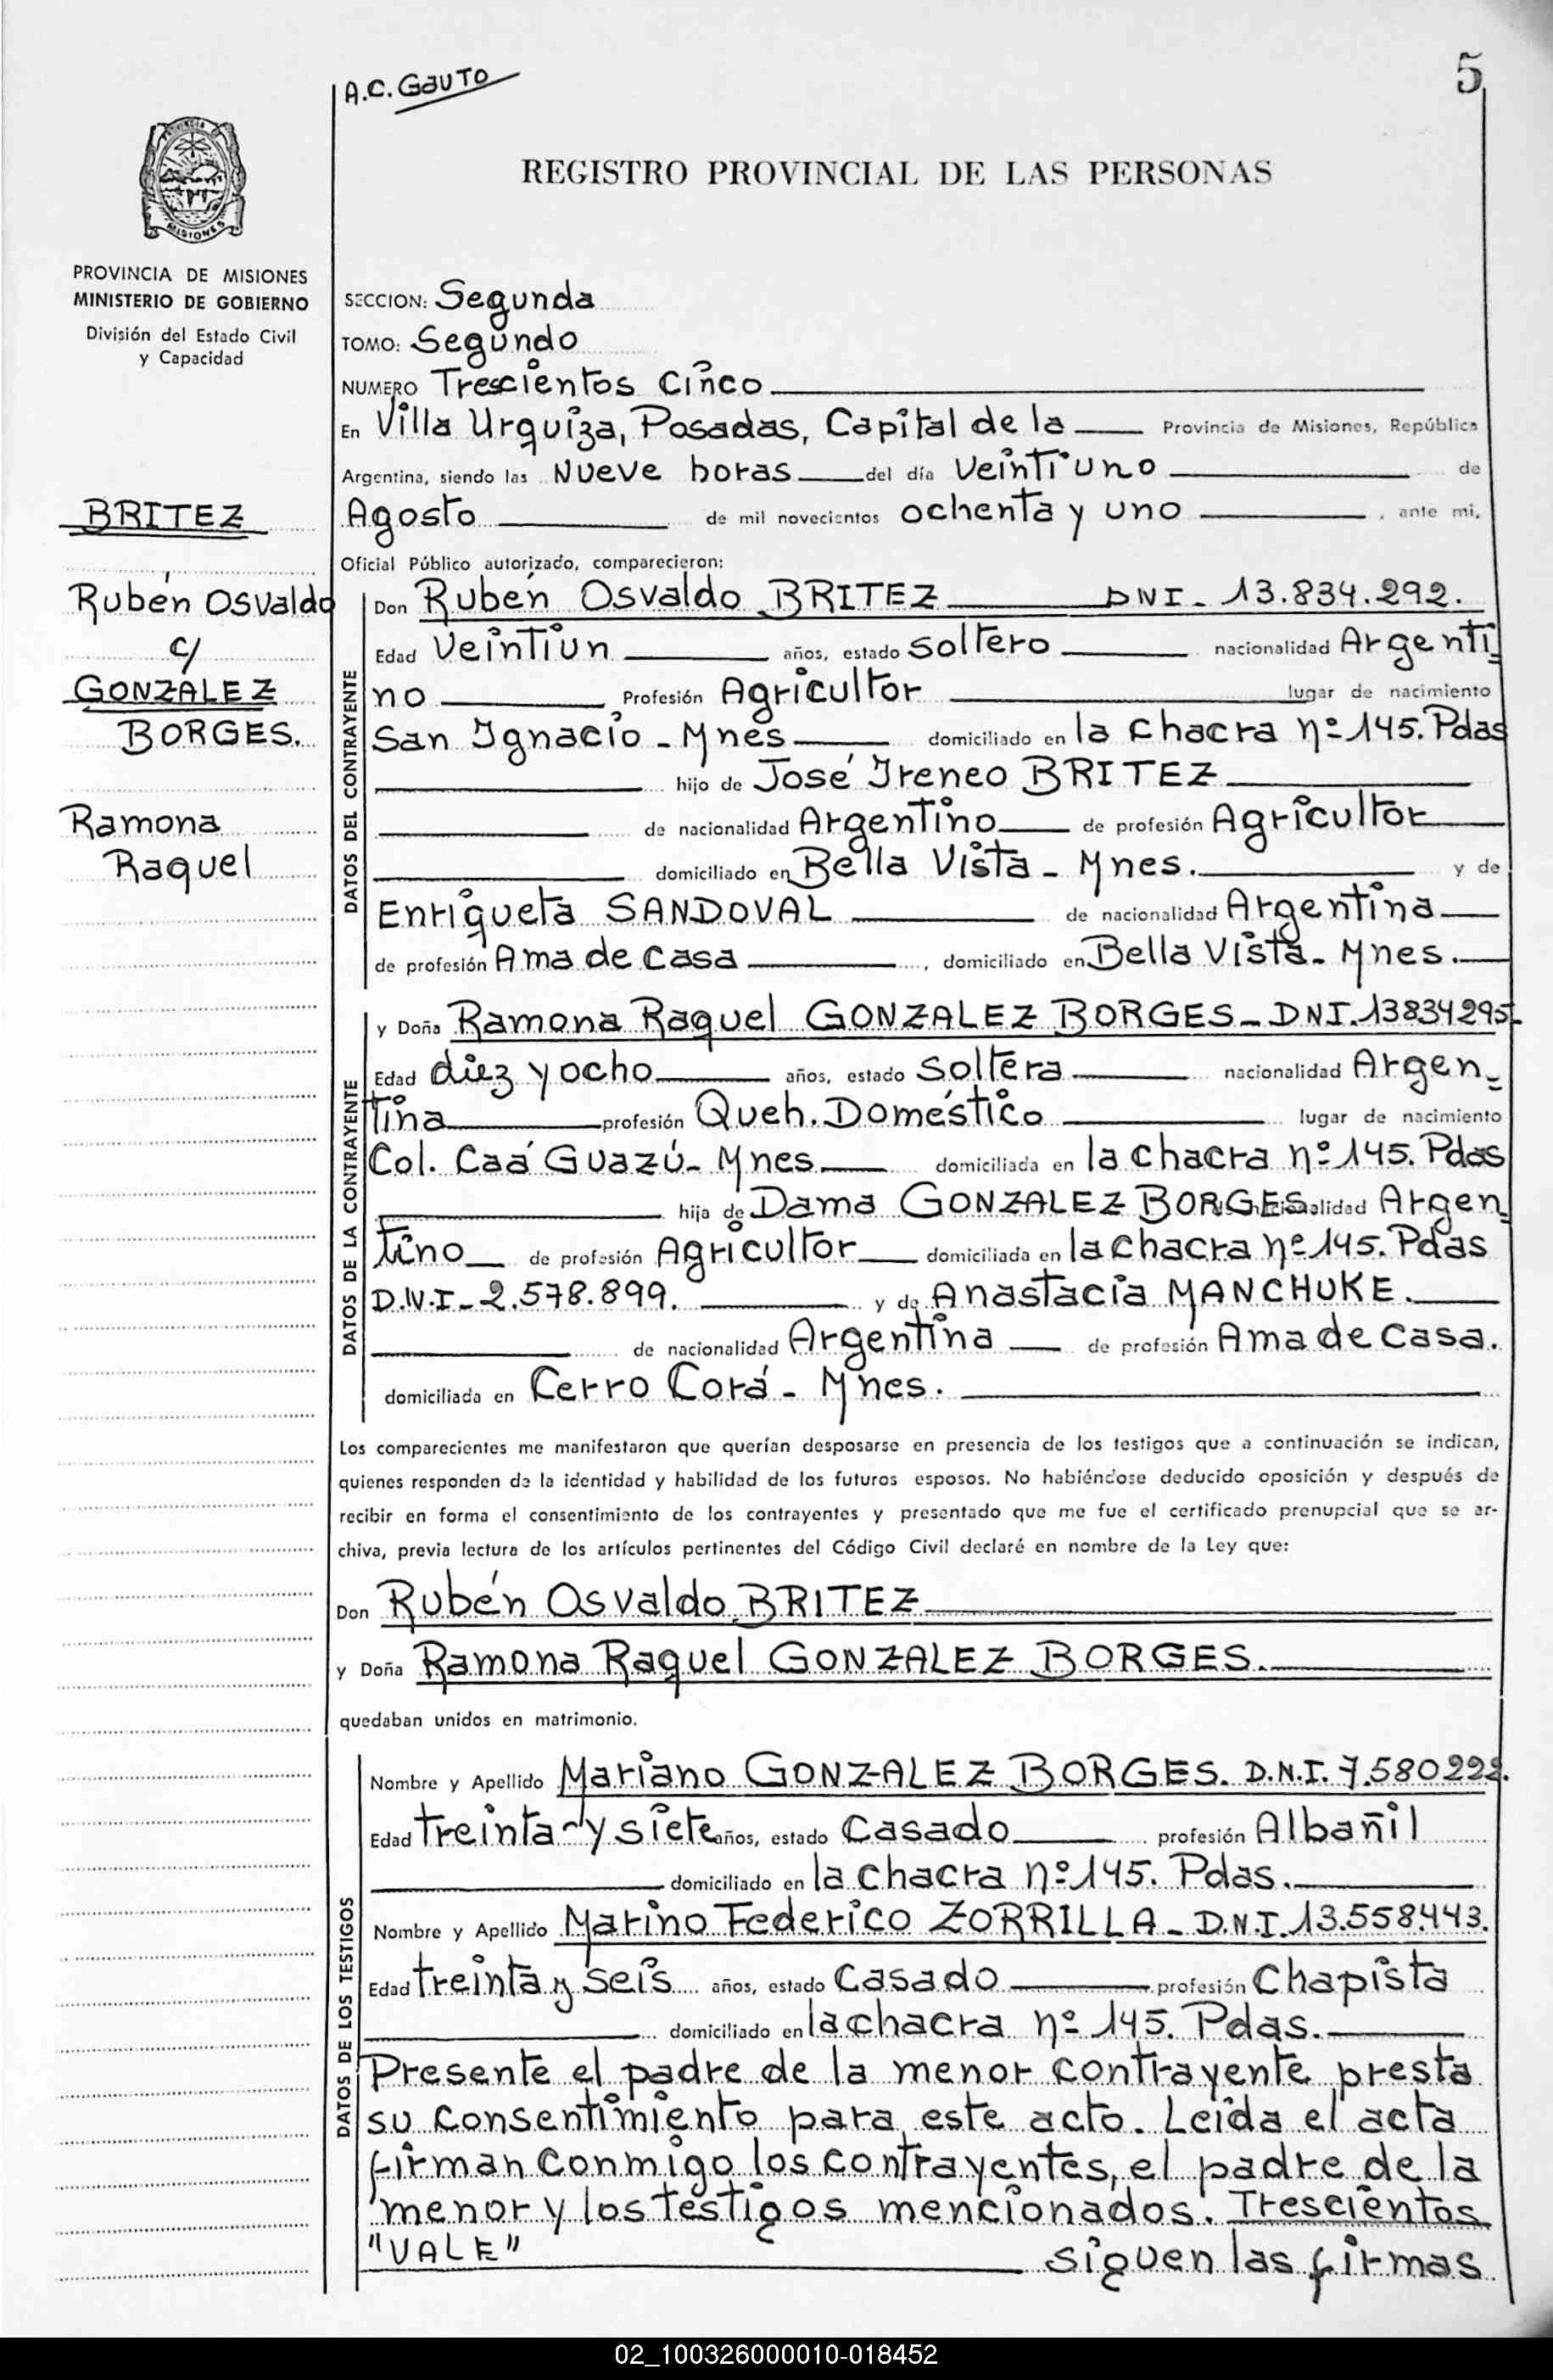 A.C. Gauto
5
MISIONES
PROVINCIA DE MISIONES
MINISTERIO DE GOBIERNO
División del Estado Civil
y Capacidad
BRITEZ
Rubén Osvaldo
c/
GONZALEZ
BORGES.
Ramona
Raquel
REGISTRO PROVINCIAL DE LAS PERSONAS
SECCION: Segunda
TOMO: Segundo
NUMERO Trescientos Cinco
En Villa Urquiza, Posadas, Capital de la Provincia de Misiones, República
Argentina, siendo las Nueve horas del día Veintiuno de
Agosto de mil novecientos ochenta y uno, ante mi,
Oficial Público autorizado, comparecieron:
DATOS DEL CONTRAYENTE
Don Rubén Osvaldo BRITEZ DNI- 13.834.292.
Edad Veintiun años, estado Soltero nacionalidad Argenti-
no Profesión Agricultor lugar de nacimiento
San Ignacio - Mnes domiciliado en la Chacra nº 145. Pdas
hijo de José Ireneo BRITEZ
de nacionalidad Argentino de profesión Agricultor
domiciliado en Bella Vista - Mnes. y de
Enriqueta SANDOVAL de nacionalidad Argentina
de profesión Ama de Casa, domiciliado en Bella Vista - Mnes.
DATOS DE LA CONTRAYENTE
y Doña Ramona Raquel GONZALEZ BORGES - DNI. 13834295-
Edad diez y ocho años, estado Soltera nacionalidad Argen-
tina profesión Queh. Doméstico lugar de nacimiento
Col. Caá Guazú - Mnes domiciliada en la chacra nº 145. Pdas
hija de Dama GONZALEZ BORGES nacionalidad Argen-
tino de profesión Agricultor domiciliada en la chacra nº 145. Pdas
D.N.I - 2.578.899. y de Anastacia MANCHUKE.
de nacionalidad Argentina de profesión Ama de Casa.
domiciliada en Cerro Corá - Mnes.
Los comparecientes me manifestaron que querían desposarse en presencia de los testigos que a continuación se indican,
quienes responden de la identidad y habilidad de los futuros esposos. No habiéndose deducido oposición y después de
recibir en forma el consentimiento de los contrayentes y presentado que me fue el certificado prenupcial que se ar-
chiva, previa lectura de los artículos pertinentes del Código Civil declaré en nombre de la Ley que:
Don Rubén Osvaldo BRITEZ
y Doña Ramona Raquel GONZALEZ BORGES.
quedaban unidos en matrimonio.
DATOS DE LOS TESTIGOS
Nombre y Apellido Mariano GONZALEZ BORGES. D.N.I. 7.580222.
Edad treinta y siete años, estado Casado profesión Albañil
domiciliado en la chacra nº 145. Pdas.
Nombre y Apellido Marino Federico ZORRILLA - D.N.I. 13.558.443.
Edad treinta y Seis años, estado Casado profesión Chapista
domiciliado en la chacra nº 145. Pdas.
Presente el padre de la menor contrayente presta
su consentimiento para este acto. Leida el acta
firman conmigo los contrayentes, el padre de la
menor y los testigos mencionados. Trescientos
"VALE" siguen las firmas
02_100326000010-018452